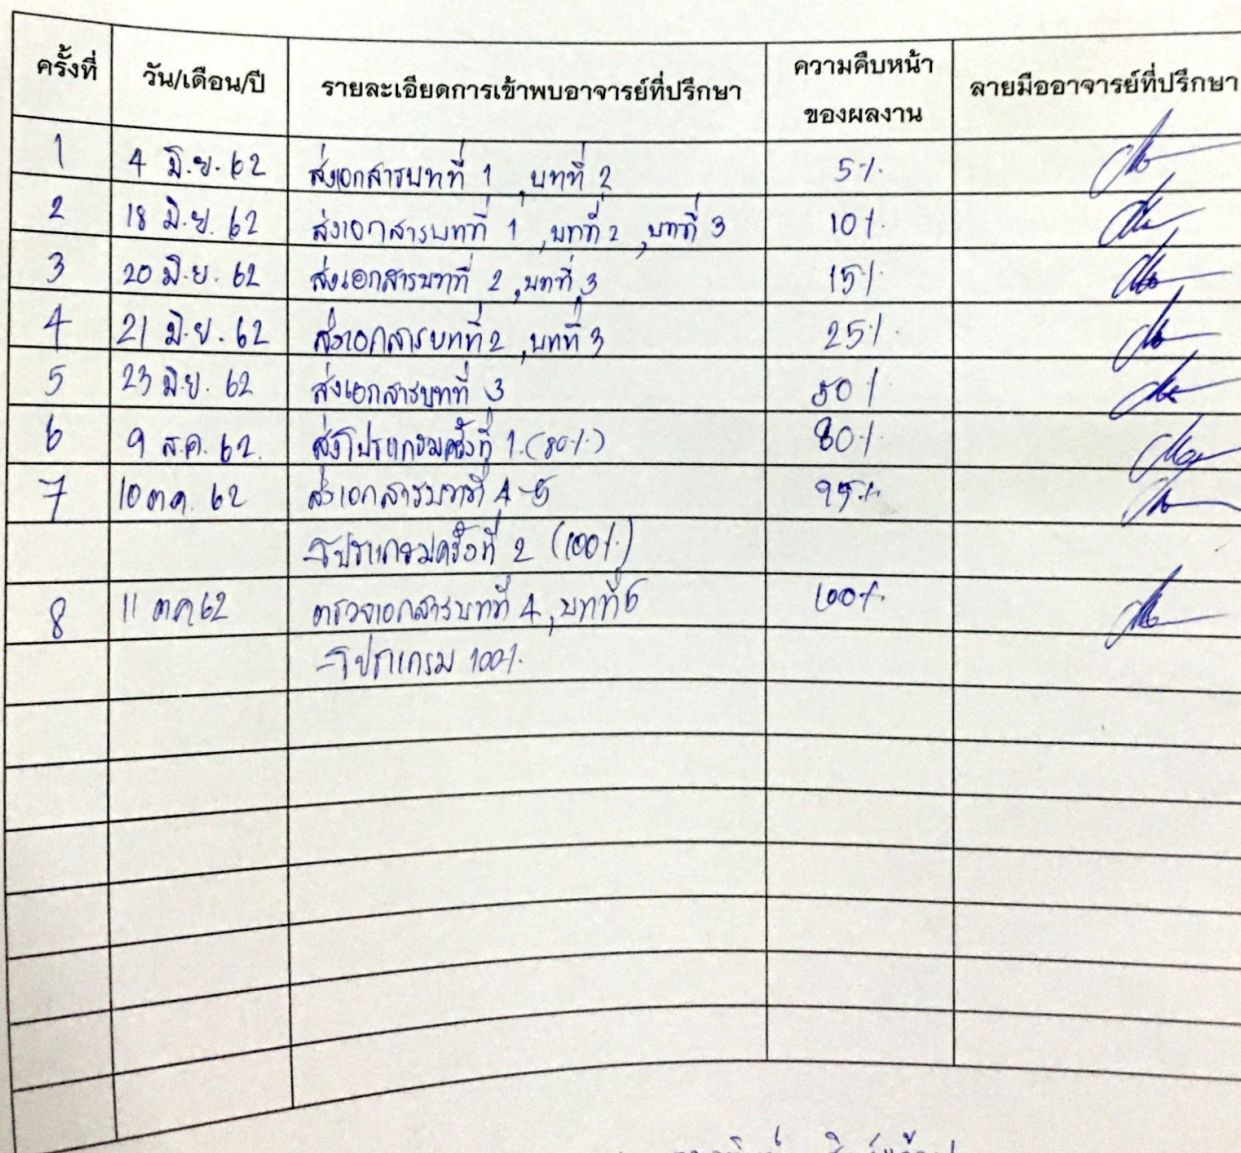 ครั้งที่ วัน/เดือน/ปี รายละเอียดการเข้าพบอาจารย์ที่ปรึกษา ความคืบหน้าของผลงาน ลายมืออาจารย์ที่ปรึกษา
1 4 มิ.ย. 62 ส่งเอกสารบทที่ 1 , บทที่ 2 5%
2 18 มิ.ย. 62 ส่งเอกสารบทที่ 1 , บทที่ 2 , บทที่ 3 10%
3 20 มิ.ย. 62 ส่งเอกสารบทที่ 2 , บทที่ 3 15%
4 21 มิ.ย. 62 ส่งเอกสารบทที่ 2 , บทที่ 3 25%
5 23 มิ.ย. 62 ส่งเอกสารบทที่ 3 50%
6 9 ส.ค. 62. ส่งโปรแกรมครั้งที่ 1. (80%) 80%
7 10 ตค. 62 ส่งเอกสารบทที่ 4-5 95%
-โปรแกรมครั้งที่ 2 (100%)
8 11 ตค 62 ตรวจเอกสารบทที่ 4 , บทที่ 5 100%
-โปรแกรม 100%